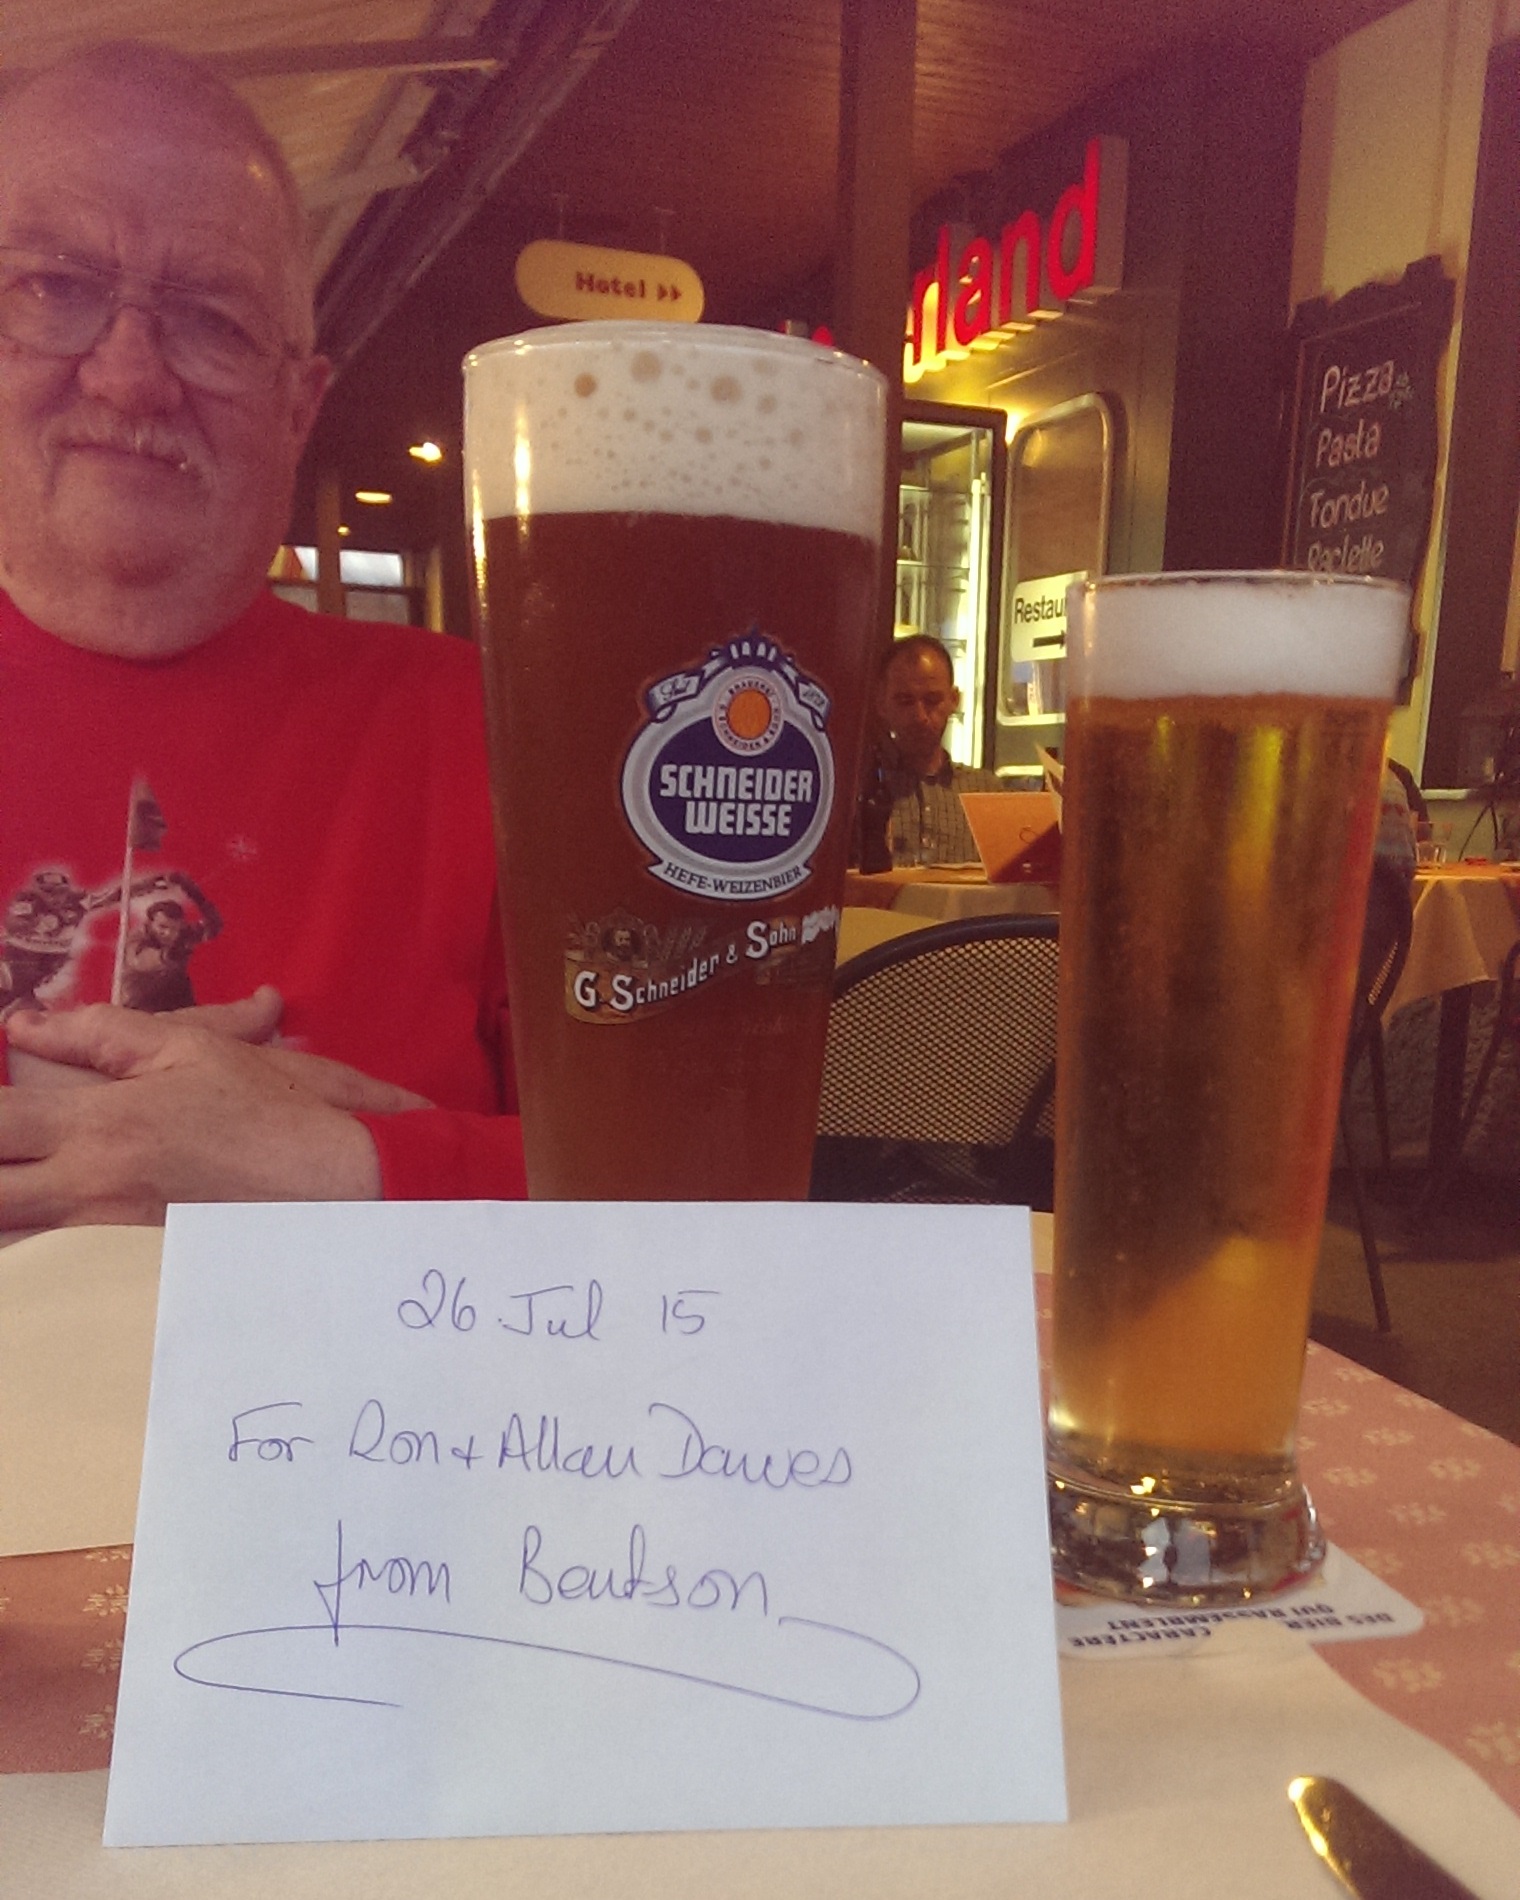 Hotel
rland
Pizza
Pasta
Fondue
Raclette
Restau
SCHNEIDER
WEISSE
HEFE-WEIZENBIER
G. Schneider & Sohn
26 Jul 15
For Ron & Allan Dawes
from Bentson
DES BIER
QUI RASSEMBLENT
CARACTÈRE